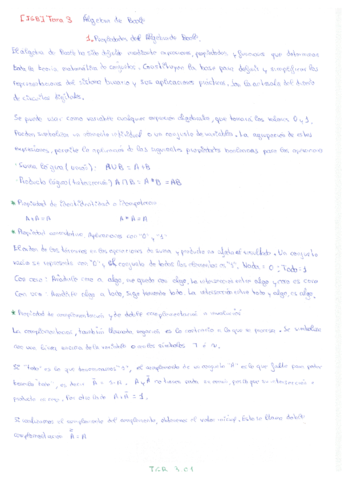 [IGR] Tema 3 Álgebra de Boole
1. Propiedades del Álgebra de Boole.
El álgebra de Boole ha sido definida mediante expresiones, propiedades y funciones que determinan
toda la teoría matemática de conjuntos. Constituyen la base para definir y simplificar las
representaciones del sistema binario y sus aplicaciones prácticas. Es la entrada del diseño
de circuitos digitales.
Se puede usar como variable cualquier expresión algebraica, que tomará los valores 0 y 1.
simboliza un elemento individual o un conjunto de variables. La agrupación de estas
expresiones, permite la aplicación de las siguientes propiedades
Suma lógica (unión): A∪B = A+B
Producto lógico (intersección) A∩B = A*B = AB
Propiedad de
A+A=A A*A=A
Propiedad conmutativa. Operaciones con "0" y "1".
El orden de los términos en las operaciones de suma y producto no altera el resultado. Un conjunto
vacío se representa con "0", el conjunto de todos los elementos es "1". Nada: 0 ; Todo: 1
Con cero: Añadirle cero a algo, me quedo con algo. La intersección entre algo y cero es cero
Con uno: Añadir algo a todo, sigo teniendo todo. La intersección entre todo y algo, es algo.
Propiedad de complementación y de doble complementación o involución
La complementación, también llamada negación es lo contrario a lo que se piensa. Se simboliza
con una línea encima de la variable o con los símbolos ? ó ~.
Si "todo" es lo que denominamos "1", el complemento de un conjunto "A" es lo que falta para poder
"todo", es decir Ā = 1-A. A y Ā no tienen nada en común, por lo que su intersección o
producto es cero. Por otro lado A+Ā = 1.
Si realizamos el complemento del complemento, obtenemos el valor inicial. Esto se llama doble
complementación A = A
IGR 3.01